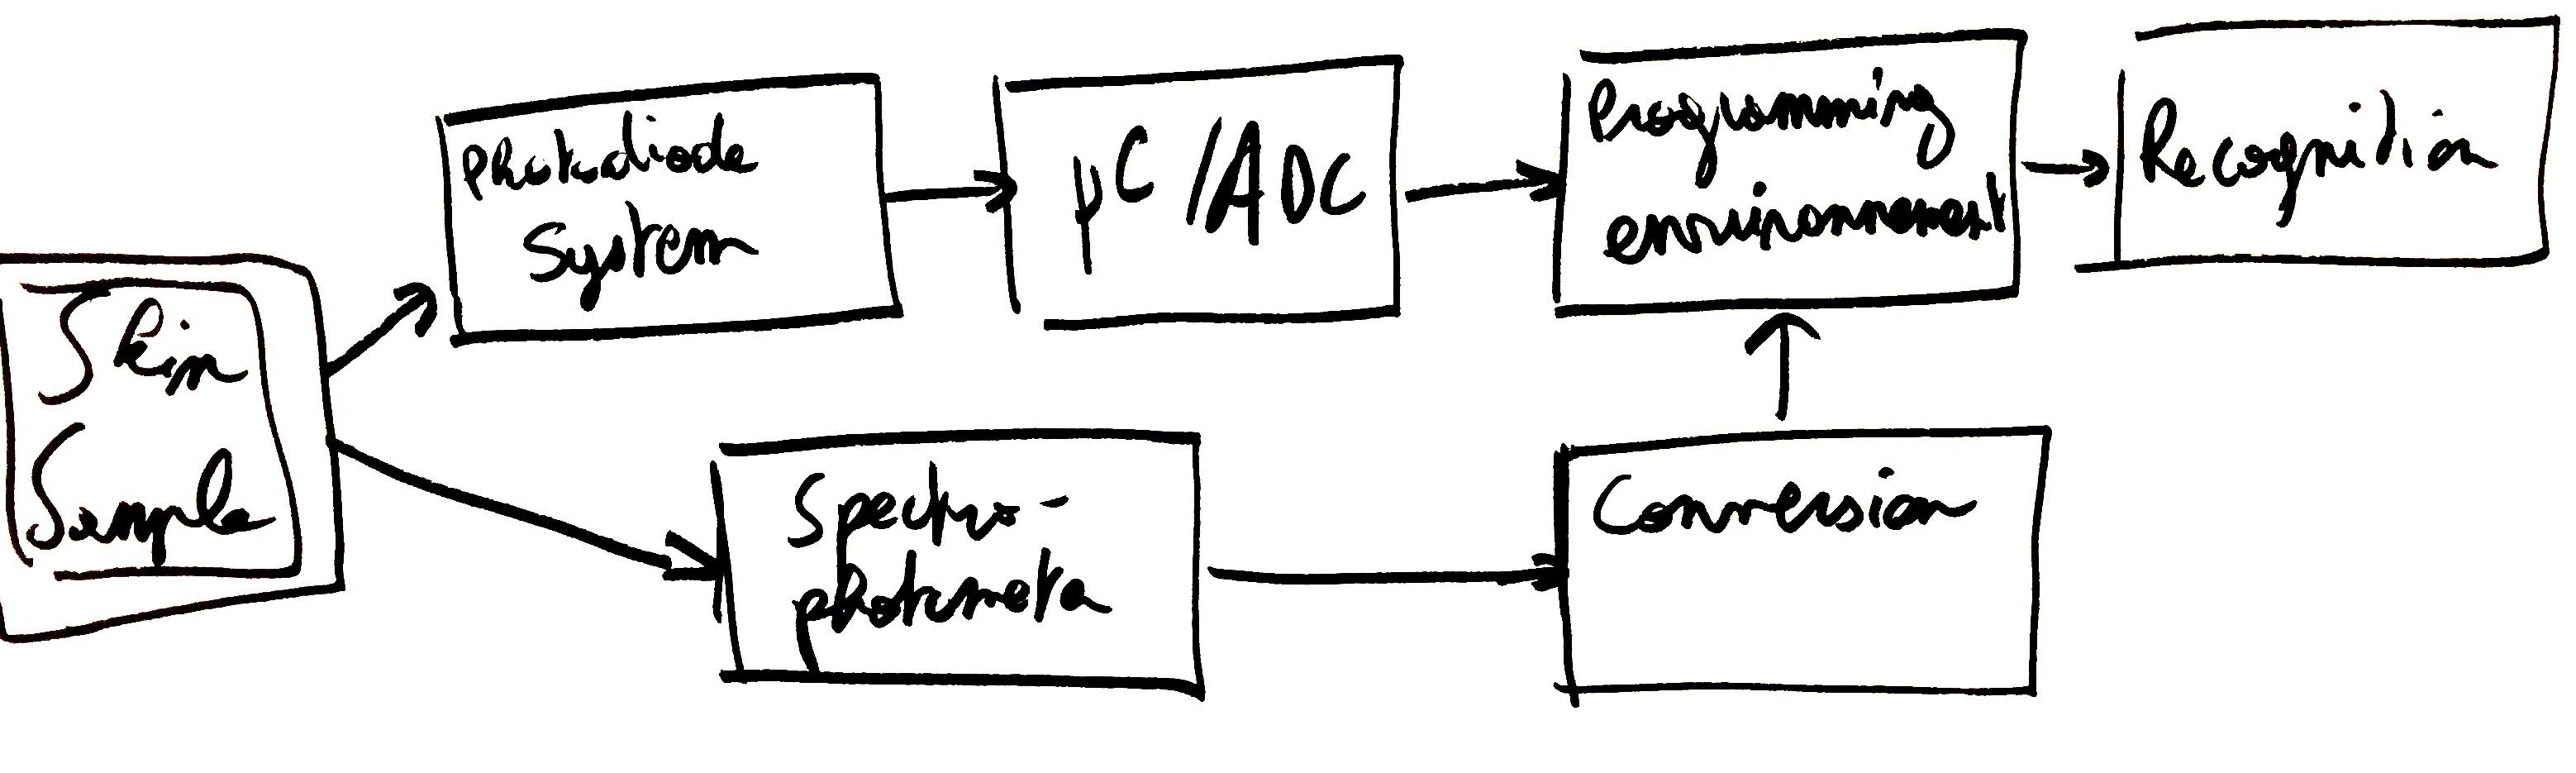 Skin
Sample
Photodiode
System
µC/ADC
Programming
environnement
Recognition
Spectro-
photometer
Conversion